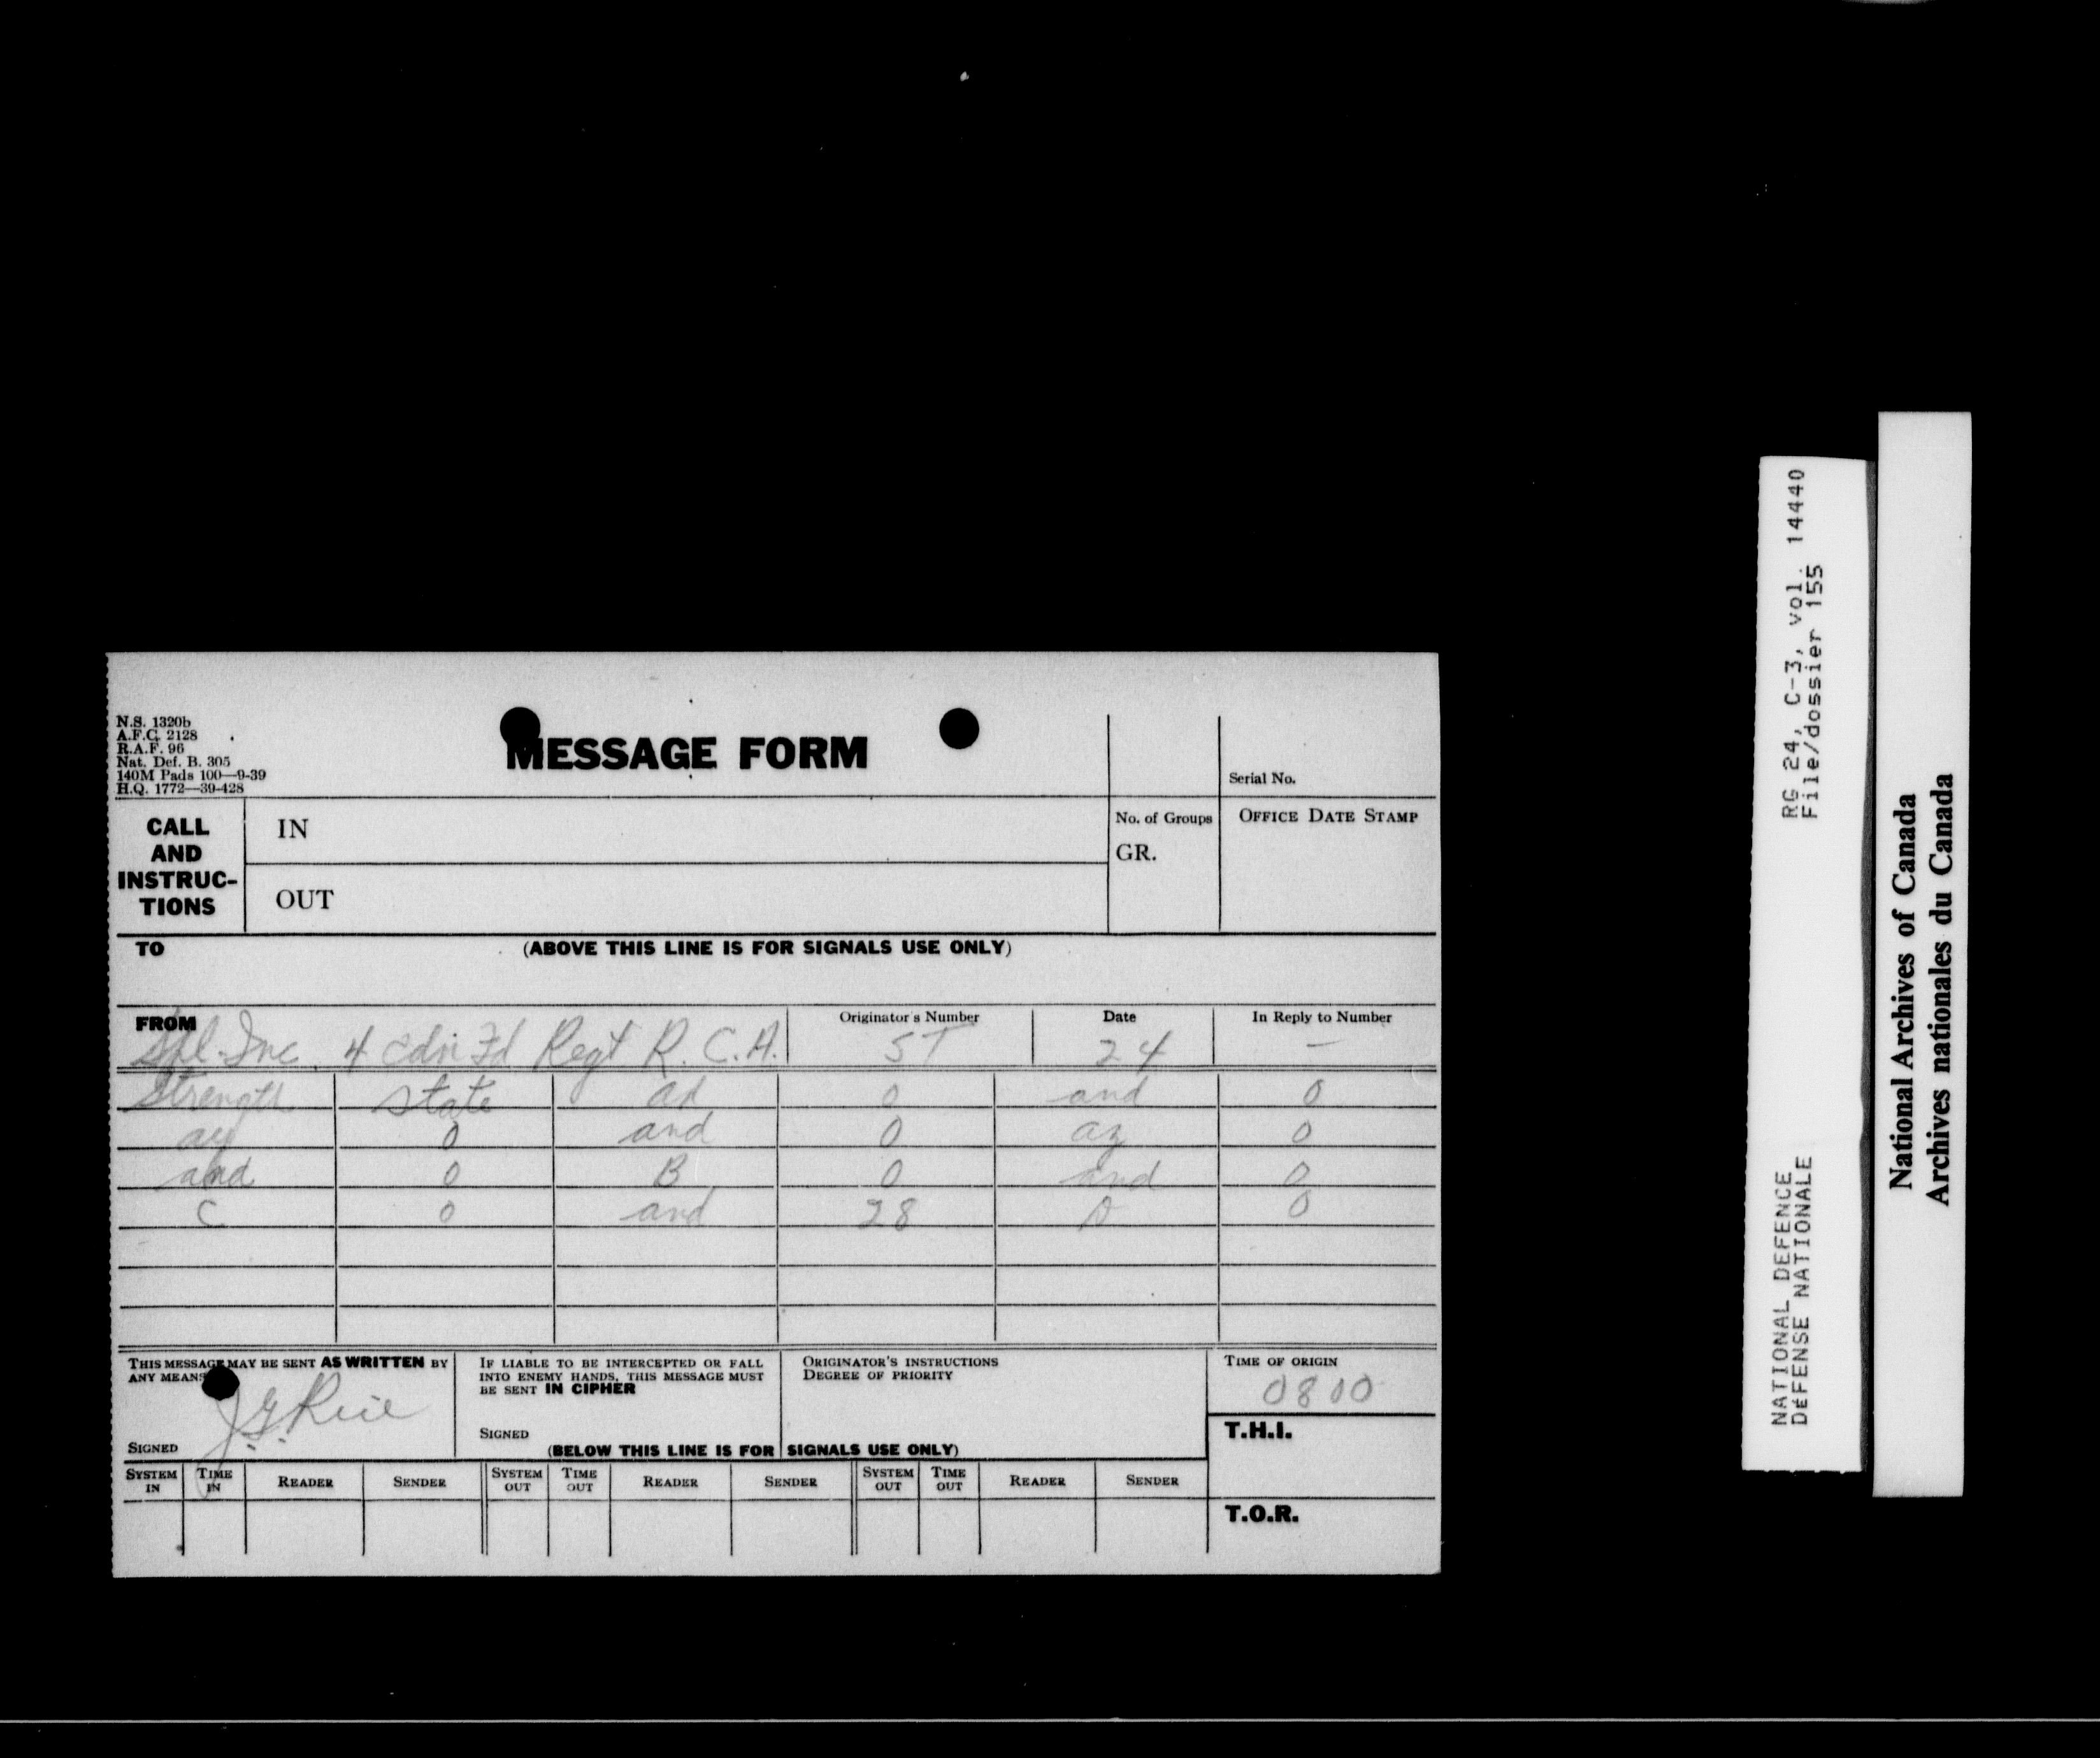 N.S. 1320b
A.F.C. 2128
R.A.F. 96
Nat. Def. B. 305
140M Pads 100—9-39
H.Q. 1772—39-428
MESSAGE FORM
Serial No.
CALL AND INSTRUC-TIONS
IN
OUT
No. of Groups
GR.
OFFICE DATE STAMP
TO
(ABOVE THIS LINE IS FOR SIGNALS USE ONLY)
FROM
4 Cdn Fd Regt R.C.A.
Originator's Number
ST
Date
24
In Reply to Number
-
Strength state ax 0 and 0
ay 0 and 0 az 0
and 0 B 0 and 0
C 0 and 28 D 0
THIS MESSAGE MAY BE SENT AS WRITTEN BY
ANY MEANS
J.G. Rice
SIGNED
IF LIABLE TO BE INTERCEPTED OR FALL
INTO ENEMY HANDS, THIS MESSAGE MUST
BE SENT IN CIPHER
SIGNED
ORIGINATOR'S INSTRUCTIONS
DEGREE OF PRIORITY
TIME OF ORIGIN
0800
T.H.I.
(BELOW THIS LINE IS FOR SIGNALS USE ONLY)
SYSTEM IN TIME IN READER SENDER SYSTEM OUT TIME OUT READER SENDER SYSTEM OUT TIME OUT READER SENDER
T.O.R.
RG 24, C-3, vol. 14440
File/dossier 155
NATIONAL DEFENCE
DEFENSE NATIONALE
National Archives of Canada
Archives nationales du Canada